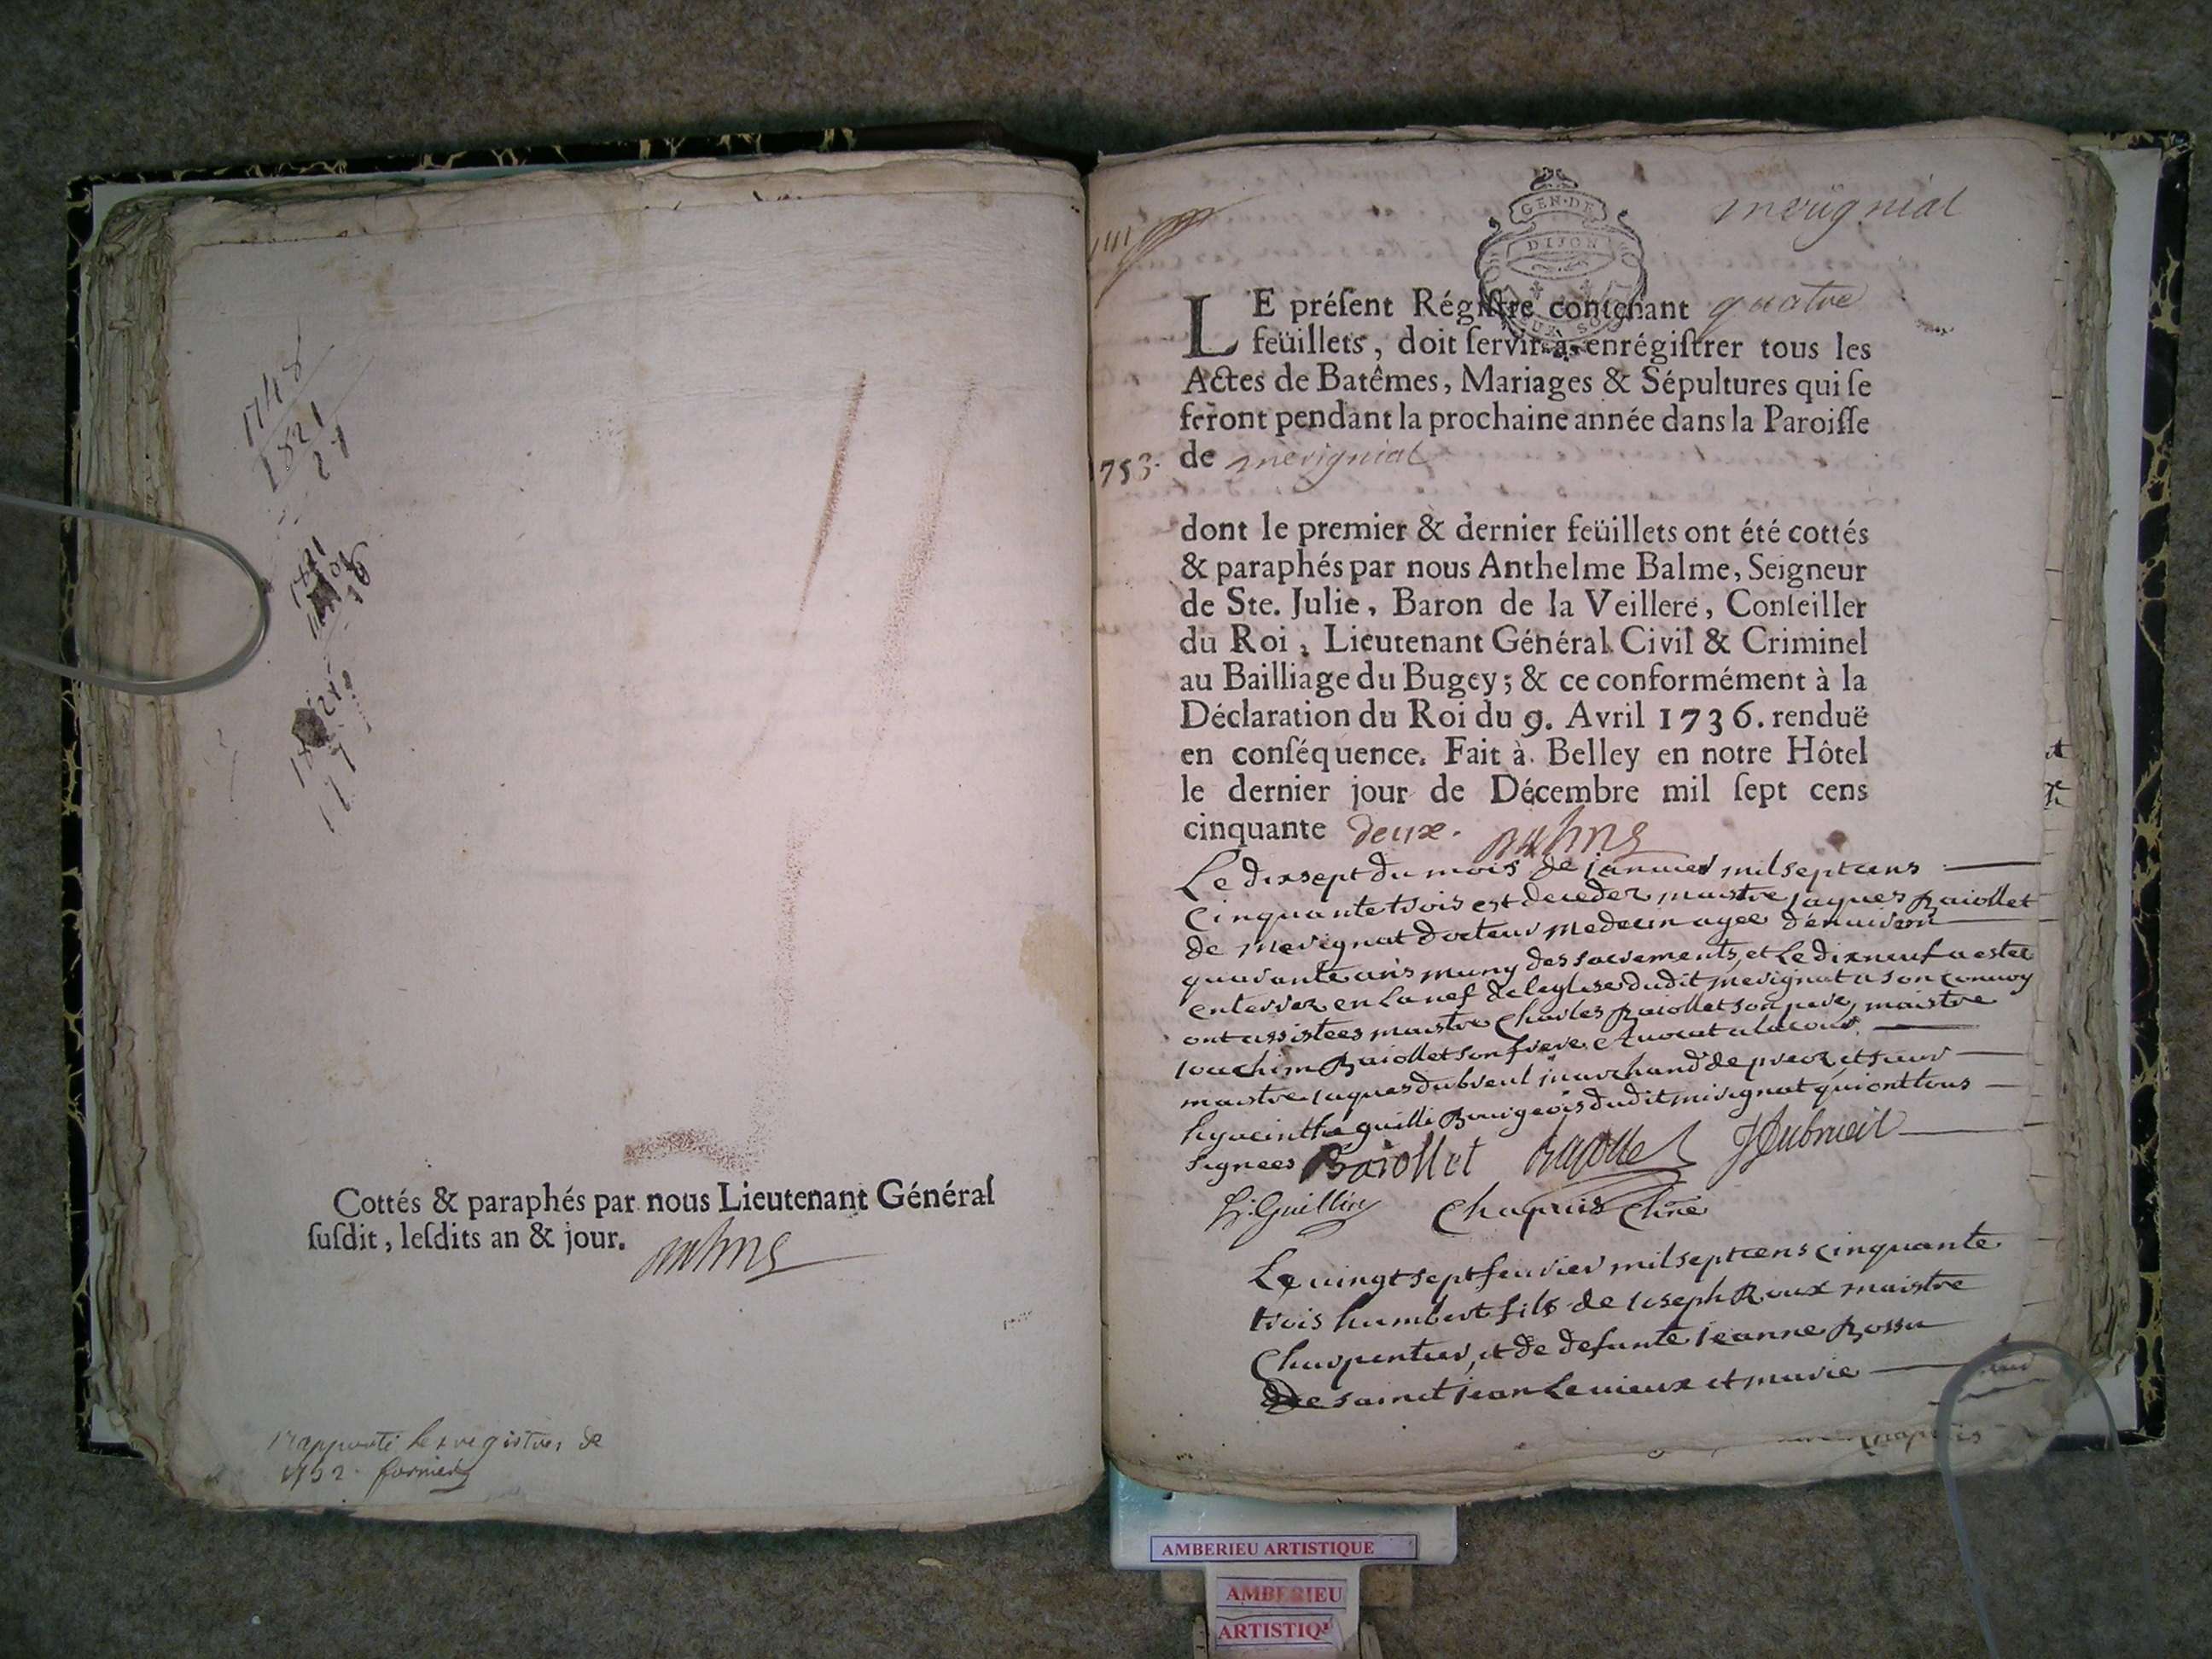 1748
1821
21
Cottés & paraphés par nous Lieutenant Général
ſuſdit, leſdits an & jour.
rapporté les registres de
1752.
GEN·DE
DIJON
merignial
LE préſent Régiſtre contenant quatre
feüillets, doit ſervir à enrégiſtrer tous les
Actes de Batêmes, Mariages & Sépultures qui ſe
feront pendant la prochaine année dans la Paroiſſe
1753. de merignial
dont le premier & dernier feüillets ont été cottés
& paraphés par nous Anthelme Balme, Seigneur
de Ste. Julie, Baron de la Veillere, Conſeiller
du Roi, Lieutenant Général Civil & Criminel
au Bailliage du Bugey; & ce conformément à la
Déclaration du Roi du 9. Avril 1736. renduë
en conſéquence. Fait à Belley en notre Hôtel
le dernier jour de Décembre mil ſept cens
cinquante deux.
Le dixsept du mois de janvier mil sept cens
cinquante trois est deceder maistre jaques Baiollet
de merignat docteur medecin agee d'enuiront
quarante ans muny des sacrements, et le dixneuf a estez
enterrez en la nef de leglise dudit merignat a son convoy
ont assistees maistre Charles Baiollet son pere, maistre
ioachim Baiollet son frere Avocat a la cour
maistre iaques dubreul marchand de preoz et sieur
hyacinthe guilli Bourgeois dudit merignat qui ont tous
signees Baiollet Baiollet JDubrueil
h: Guillin Chapuis Curé
Le uingt sept feurier mil sept cens cinquante
trois humbert fils de ioseph Roux maistre
Charpentier, et de defunte ieanne Rossu
de sainct jean le uieux et marie
AMBERIEU ARTISTIQUE
AMBERIEU
ARTISTIQU